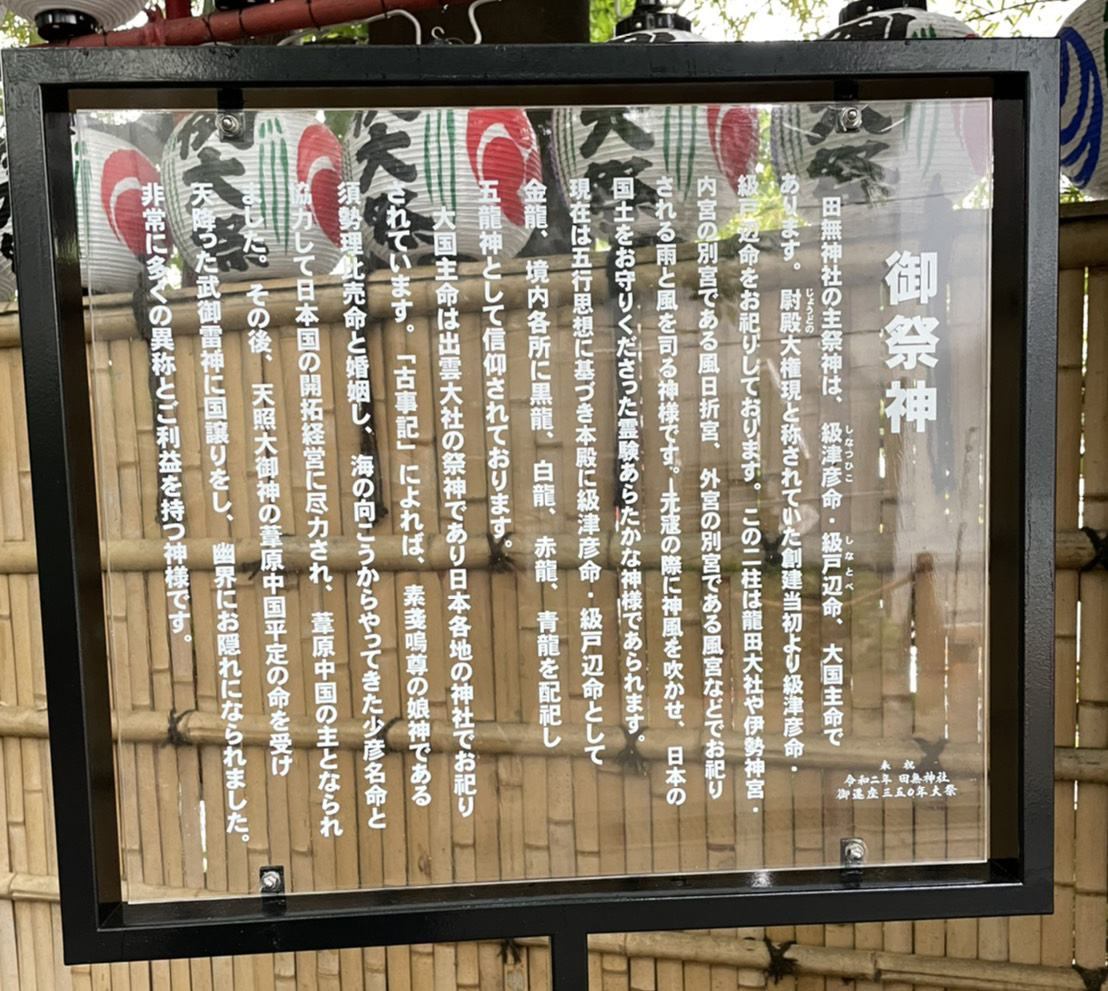 御祭神
奉祝
令和二年 田無神社
御遷座三五〇年大祭
田無神社の主祭神は、級津彦命・級戸辺命、大国主命で
しなつひこ
しなとべ
あります。尉殿大権現と称されていた創建当初より級津彦命・
じょうどの
級戸辺命をお祀りしております。この二柱は龍田大社や伊勢神宮・
内宮の別宮である風日折宮、外宮の別宮である風宮などでお祀り
される雨と風を司る神様です。元寇の際に神風を吹かせ、日本の
国土をお守りくださった霊験あらたかな神様であられます。
現在は五行思想に基づき本殿に級津彦命・級戸辺命として
金龍、境内各所に黒龍、白龍、赤龍、青龍を配祀し
五龍神として信仰されております。
大国主命は出雲大社の祭神であり日本各地の神社でお祀り
されています。「古事記」によれば、素戔嗚尊の娘神である
須勢理比売命と婚姻し、海の向こうからやってきた少彦名命と
協力して日本国の開拓経営に尽力され、葦原中国の主となられ
ました。その後、天照大御神の葦原中国平定の命を受け
天降った武御雷神に国譲りをし、幽界にお隠れになられました。
非常に多くの異称とご利益を持つ神様です。
例大祭
大祭
大祭
大祭